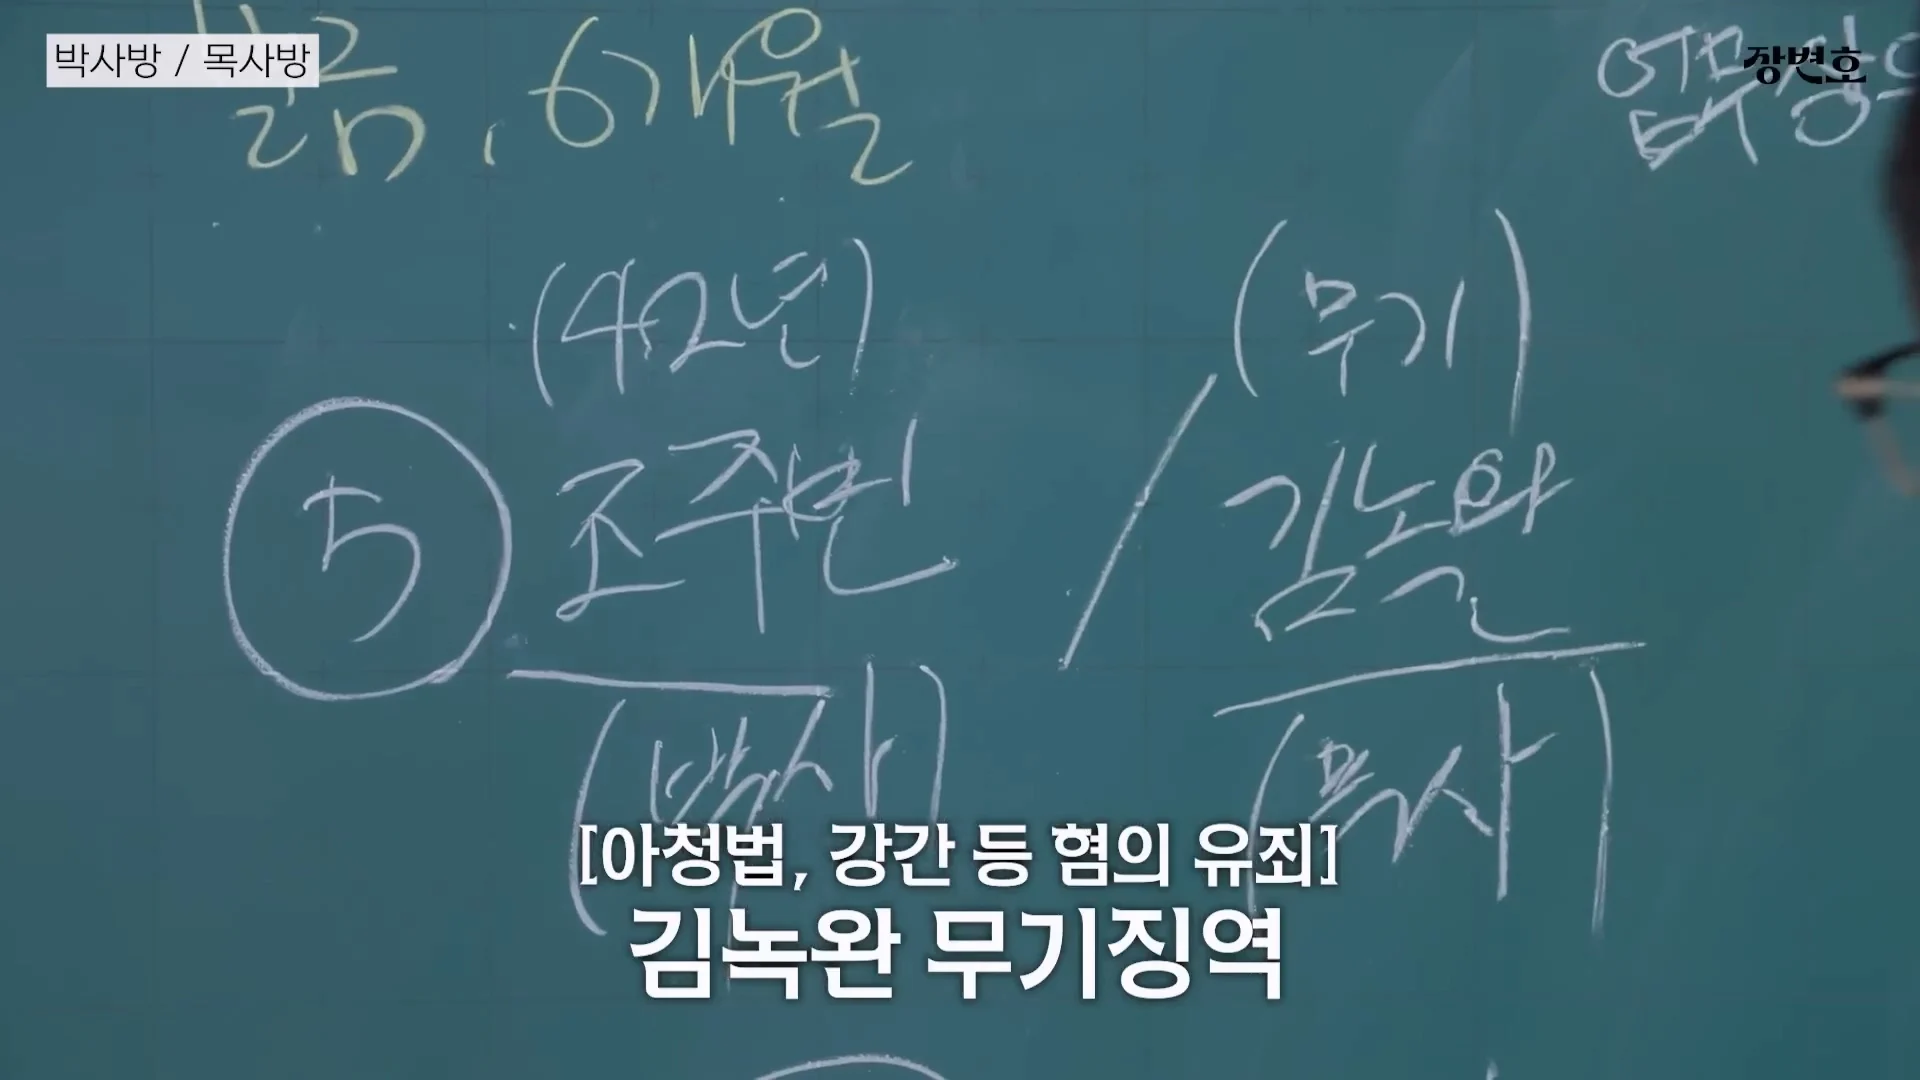 박사방 / 목사방
장변호
6개월
(42년)
(무기)
5
조주빈
/
김녹완
(박사)
(목사)
[아청법, 강간 등 혐의 유죄]
김녹완 무기징역